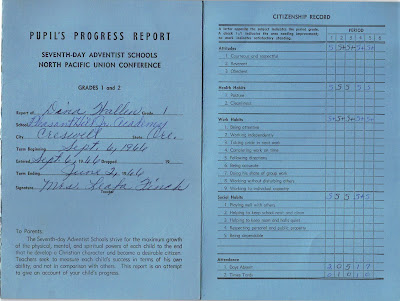 PUPIL'S PROGRESS REPORT
SEVENTH-DAY ADVENTIST SCHOOLS
NORTH PACIFIC UNION CONFERENCE
GRADES 1 and 2
Report of Dina Wallen Grade 1
School Pleasant Hill Jr. Academy
City Creswell State Ore.
Term Beginning Sept. 6, 1966
Entered Sept 6, 1966 Dropped 19
Term Ending June 2, 1966
Signature Mrs. Finch
Teacher
To Parents:
The Seventh-day Adventist Schools strive for the maximum growth
of the physical, mental, and spiritual powers of each child to the end
that he develop a Christian character and become a desirable citizen.
Teachers seek to measure each child's success in terms of his own
ability, and not in comparison with others. This report is an attempt
to give an account of your child's progress.
CITIZENSHIP RECORD
PERIOD
1 2 3 4 5 6
Attitudes
1. Courteous and cooperative
2. Reverent
3. Obedient
Health Habits
1. Posture
2. Cleanliness
Work Habits
1. Being attentive
2. Working independently
3. Taking pride in work
4. Completing work on time
5. Following directions
6. Being accurate
7. Doing his share of group work
8. Working without disturbing others
9. Working to individual capacity
Social Habits
1. Playing well with others
2. Helping to keep school neat and clean
3.
4. Respecting personal and public property
5. Being dependable
Attendance
1. Days Absent
2. Times Tardy